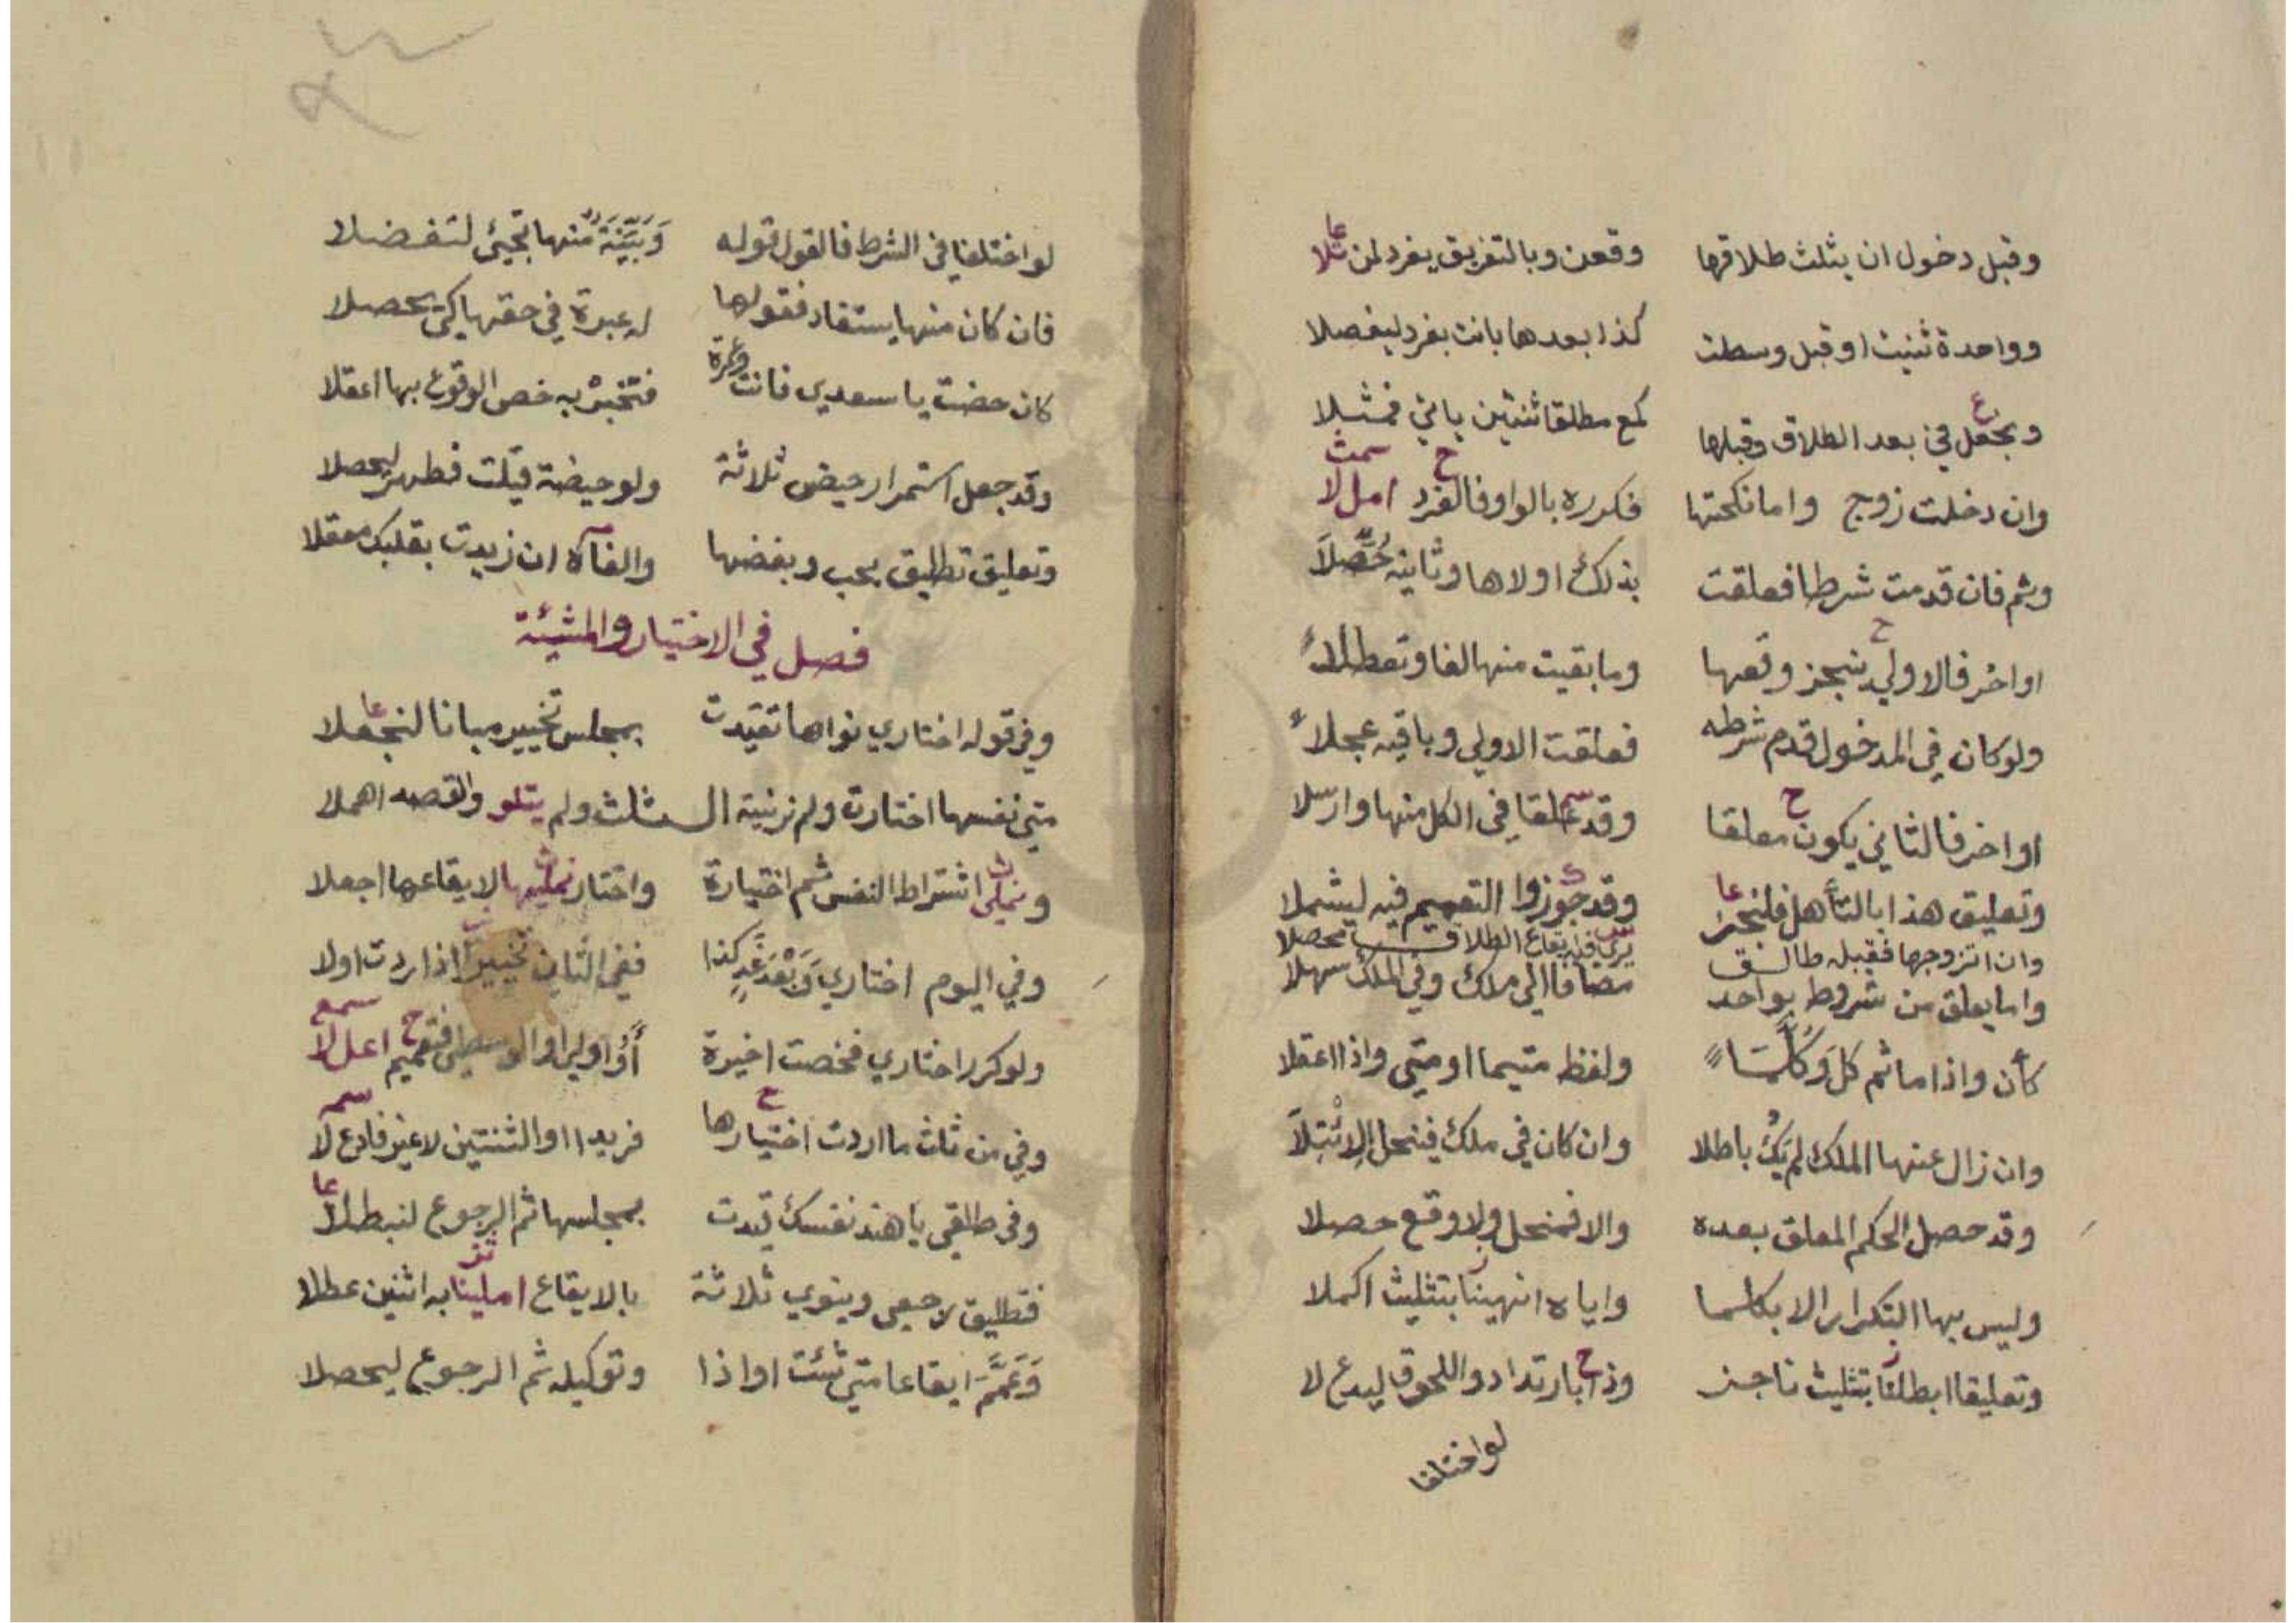 وقبل دخول ان يثلث طلاقها وقعن وبالتفريق يفرد لمن تلا
وواحدة ثنيت او قبل وسطت كذا بعدها بانت بفرد ليفصلا
ويجعل في بعد الطلاق وقبلها كمع مطلقا ثنتين ياتي فمثلا
وان دخلت زوج واما نكحتها فكرره بالواو فالفرد امل لا
وثم فان قدمت شرطا فعلقت بذلك اولاها وثانيه حُصِّلَا
او اخر فالاولي ينجز وقعها وما بقيت منها لغا وتعطلا
ولو كان في المدخول قدم شرطه فعلقت الاولي وباقيه عجلا
او اخر فالثاني يكون معلقا وقد علقا في الكل منها وارسلا
وتعليق هذا بالتأهل فلنجز وقد جوزوا التعميم فيه ليشملا
وان اتزوجها فقبله طالق يرى فيه ايقاع الطلاق محصلا
واما يعلق من شروط بواحد مضافا الي ملك وفي الملك سهلا
كأن واذا ما ثم كل وَكُلَّمَا ولفظ متيما او متي واذا اعقلا
وان زال عنها الملك لم يَكُ باطلا وان كان في ملك فينحل
وقد حصل الحكم المعلق بعده والا فمنحل ولا وقع حصلا
وليس بها التكرار الا بكلما واياه انهينا بتثليث اكملا
وتعليقا ابطلنا بتثليث ناجز وذا بارتداد واللحوق ليدع لا
لو اختلفا
لو اختلفا في الشرط فالقول قوله وَبَيِّنَةٌ منها تجيئ لتفضلا
فان كان منها يستفاد فقولها له عبرة في حقها كي يحصلا
كان حضت يا سعدي فانت وغرة فتخبر به خص الوقوع بها اعقلا
وقد جعل استمرار حيض ثلاثة ولو حيضة قيلت فطهر ليحصلا
وتعليق تطليق بحب وبغضها والغاه ان زيدت بقلبك معقلا
فصل في الاختيار والمشيئة
وفي قوله اختاري نواها تقيدت بمجلس تخيير مبانا لنجعلا
متي نفسها اختارت ولم نر نية الثلث ولم يتلو والقصه اهملا
اشتراط النفس ثم اختيارة واختار لايقاعها اجعلا
وفي اليوم اختاري وَبَعْدَ غَدٍ كذا ففي الثان تخييرا اذا ردت اولا
ولو كرر اختاري فخصت اخيرة أَوْ اولي او الوسطي فتعميم اعل لا
وفي من ثلث ما اردت اختيارها فريدا او الثنتين لا غير فادع لا
وفي طلقي يا هند نفسك قيدت بمجلسها ثم الرجوع لنبطلا
فتطليق رجعي وينوي ثلاثة بالايقاع املينا به اثنين عطلا
وَعَمَّمَ ايقاعا متي شئت او اذا وتوكيله ثم الرجوع ليحصلا